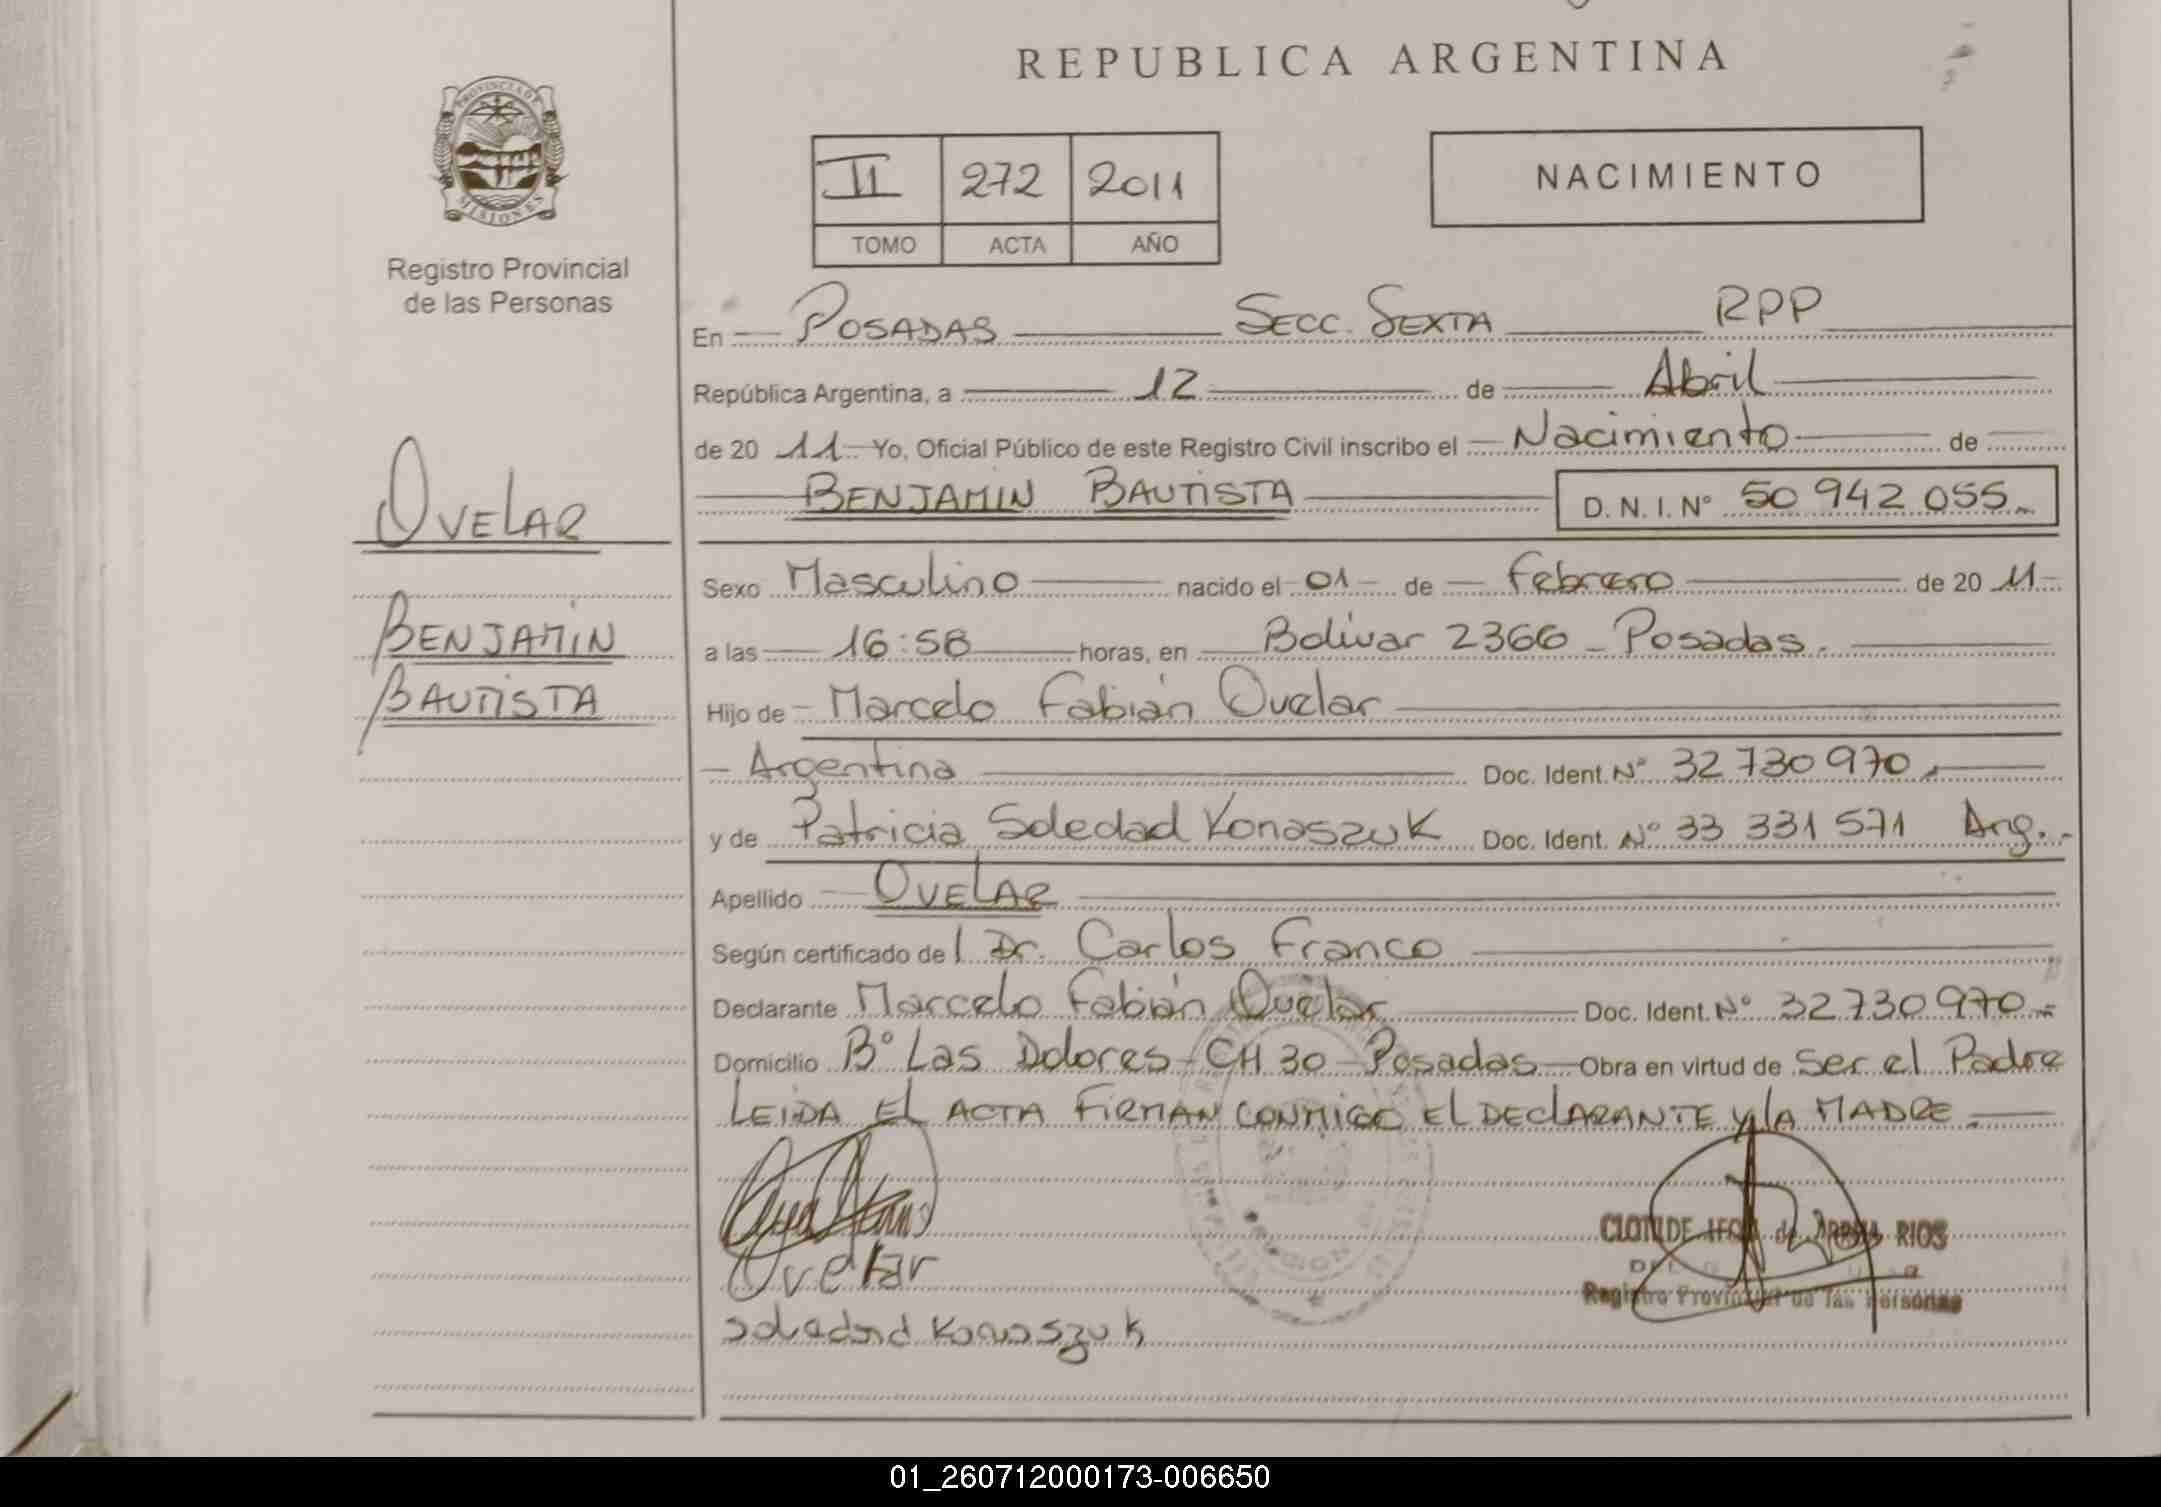 REPUBLICA ARGENTINA
PROVINCIA DE MISIONES
Registro Provincial
de las Personas
II 272 2011
TOMO ACTA AÑO
NACIMIENTO
En POSADAS SECC. SEXTA RPP
República Argentina, a 12 de Abril
de 20 11 Yo, Oficial Público de este Registro Civil inscribo el Nacimiento de
BENJAMIN BAUTISTA D.N.I. Nº 50 942 055
OVELAR
BENJAMIN
BAUTISTA
Sexo Masculino nacido el 01 de Febrero de 20 11
a las 16:58 horas, en Bolívar 2366 - Posadas.
Hijo de Marcelo Fabián Ovelar
Argentina Doc. Ident. Nº 32 730 970
y de Patricia Soledad Konaszuk Doc. Ident. Nº 33 331 571 Arg.
Apellido OVELAR
Según certificado de l Dr. Carlos Franco
Declarante Marcelo Fabián Ovelar Doc. Ident. Nº 32 730 970
Domicilio Bº Las Dolores - CH 30 - Posadas Obra en virtud de ser el Padre
LEIDA El ACTA FIRMAN CONMIGO El DEClARANTE y lA MADRE.
Ovelar
Soledad Konaszuk
CLOTILDE de RIOS
Registro Provincial de las Personas
01_260712000173-006650